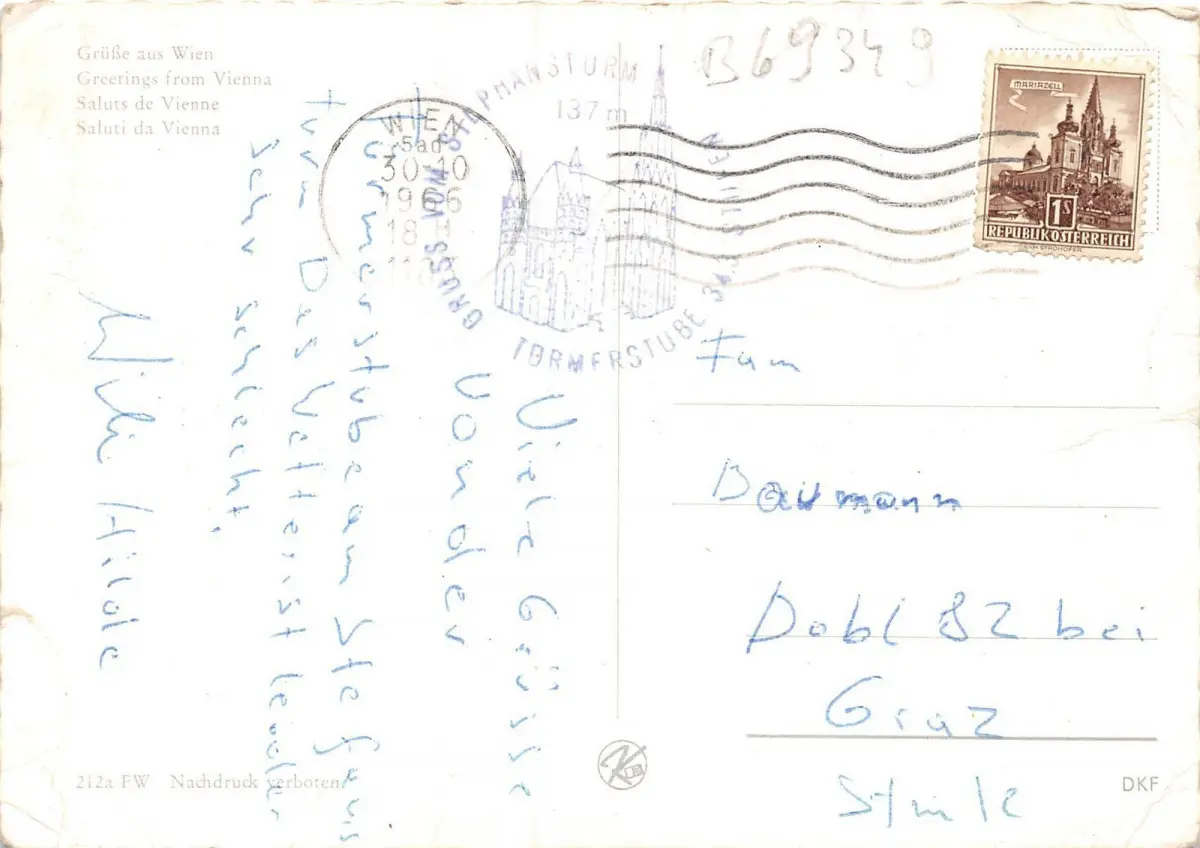 Grüße aus Wien
Greetings from Vienna
Saluts de Vienne
Saluti da Vienna
B69349
WIEN
30.10
1966
18
GRUSS VOM STEPHANSTURM
137m
TÜRMERSTUBE 343 STUFEN
MARIAZELL
1S
REPUBLIK ÖSTERREICH
Viele Grüsse
von der
Türmerstube am Stefans
turm Das Wetter ist leider
sehr schlecht.
Willi Hilde
Fam
Baumann
Dobl 82 bei
Graz
212a FW Nachdruck verboten
DKF